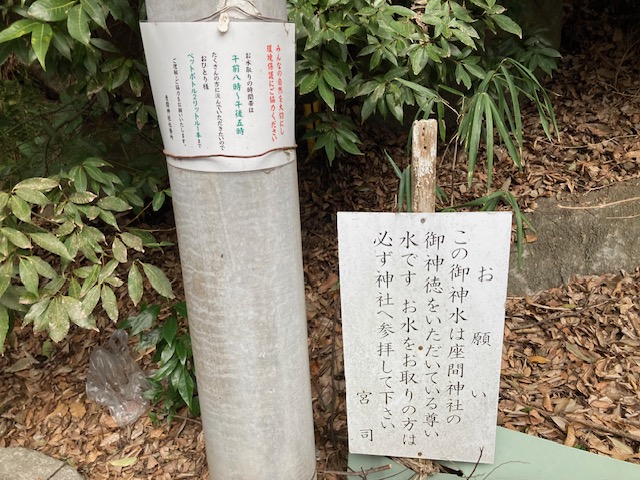 みんなの自然を大切にし
環境保護にご協力ください
お水取りの時間帯は
午前八時〜午後五時
たくさんの方に汲んでいただきたいので
おひとり様
ペットボトル2リットル1本まで
ご理解とご協力をお願いいたします。
座間神社社務所
お願い
この御神水は座間神社の
御神徳をいただいている尊い
水です お水をお取りの方は
必ず神社へ参拝して下さい
宮司